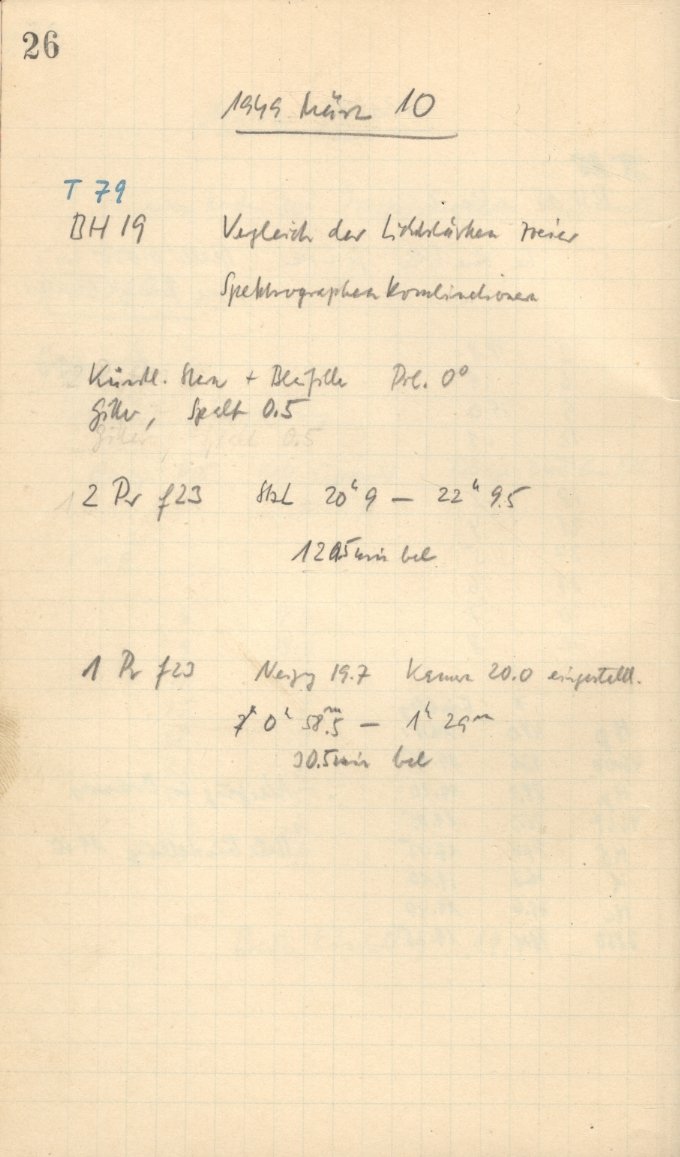 26
1949 März 10
T 79
BH 19 Vergleich der Lichtstärken zweier
Spektrographenkombinationen
Künstl. Stern + Blaufilter Pol. 0°
Gitter, Spalt 0.5
2 Pr f23 20ʰ 9 — 22ʰ 9.5
120.5 min bel
1 Pr f23 Neigg 19.7 Kamera 20.0 eingestellt.
0ʰ 58.5ᵐ — 1ʰ 29ᵐ
30.5 min bel